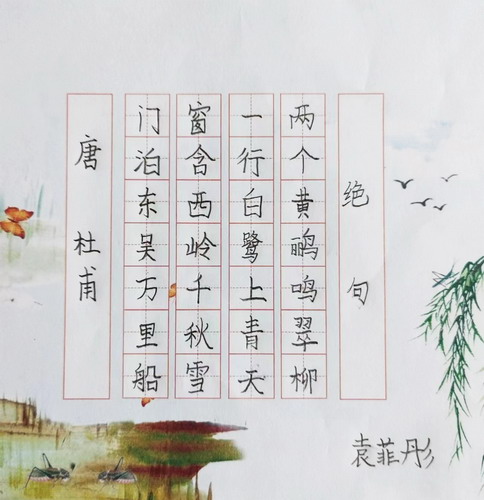 绝句
两个黄鹂鸣翠柳
一行白鹭上青天
窗含西岭千秋雪
门泊东吴万里船
唐 杜甫
袁菲彤